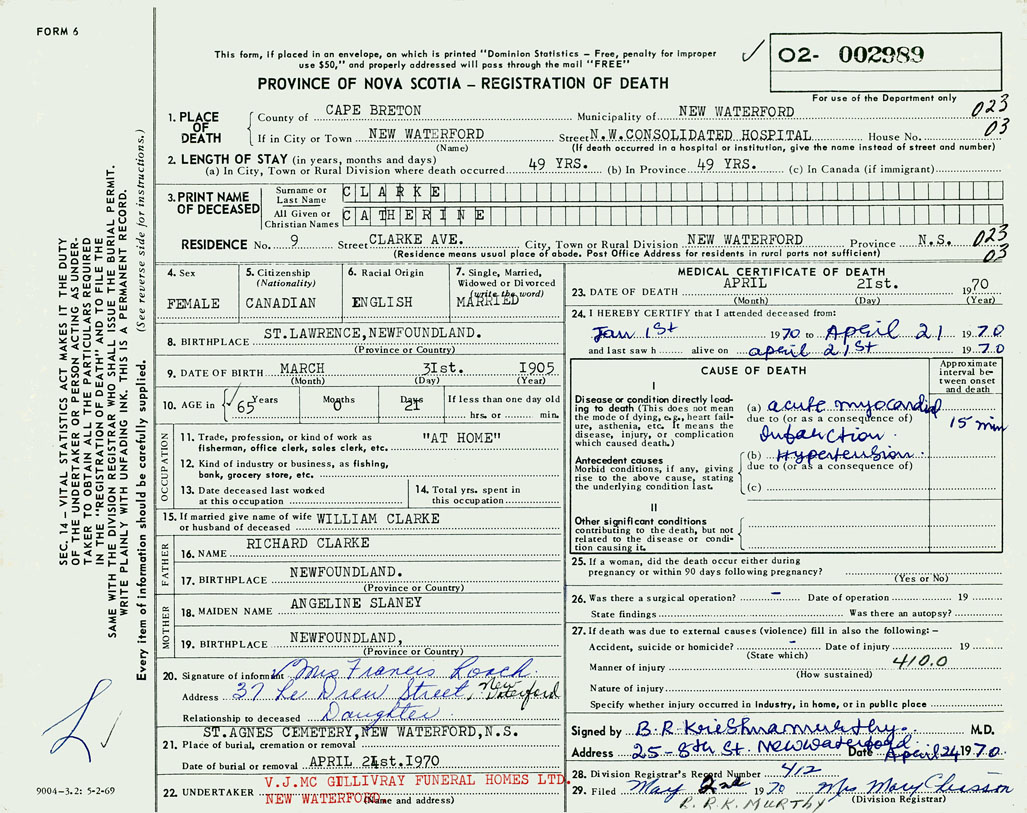 FORM 6
This form, if placed in an envelope, on which is printed "Dominion Statistics – Free, penalty for improper
use $50," and properly addressed will pass through the mail "FREE"
✓ O2- 002989
PROVINCE OF NOVA SCOTIA – REGISTRATION OF DEATH
For use of the Department only
1. PLACE OF DEATH
County of CAPE BRETON Municipality of NEW WATERFORD 023
If in City or Town NEW WATERFORD Street N.W.CONSOLIDATED HOSPITAL House No. 03
(Name) (If death occurred in a hospital or institution, give the name instead of street and number)
2. LENGTH OF STAY (in years, months and days)
(a) In City, Town or Rural Division where death occurred 49 YRS. (b) In Province 49 YRS. (c) In Canada (if immigrant)
3. PRINT NAME OF DECEASED
Surname or Last Name CLARKE
All Given or Christian Names CATHERINE
RESIDENCE No. 9 Street CLARKE AVE. City, Town or Rural Division NEW WATERFORD Province N.S. 023
(Residence means usual place of abode. Post Office Address for residents in rural parts not sufficient) 03
4. Sex
FEMALE
5. Citizenship
(Nationality)
CANADIAN
6. Racial Origin
ENGLISH
7. Single, Married,
Widowed or Divorced
(write the word)
MARRIED
8. BIRTHPLACE ST.LAWRENCE,NEWFOUNDLAND.
(Province or Country)
9. DATE OF BIRTH MARCH 31st. 1905
(Month) (Day) (Year)
10. AGE in ✓ 65 Years 0 Months 21 Days If less than one day old
hrs. or min.
OCCUPATION
11. Trade, profession, or kind of work as
fisherman, office clerk, sales clerk, etc. "AT HOME"
12. Kind of industry or business, as fishing,
bank, grocery store, etc.
13. Date deceased last worked
at this occupation
14. Total yrs. spent in
this occupation
15. If married give name of wife
or husband of deceased WILLIAM CLARKE
FATHER
16. NAME RICHARD CLARKE
17. BIRTHPLACE NEWFOUNDLAND.
(Province or Country)
MOTHER
18. MAIDEN NAME ANGELINE SLANEY
19. BIRTHPLACE NEWFOUNDLAND,
(Province or Country)
20. Signature of informant Mrs Francis Roach
Address 37 Le Drew Street, New Waterford
Relationship to deceased Daughter
ST.AGNES CEMETERY,NEW WATERFORD,N.S.
21. Place of burial, cremation or removal
Date of burial or removal APRIL 24st.1970
22. UNDERTAKER V.J.MC GILLIVRAY FUNERAL HOMES LTD.
NEW WATERFORD.
(Name and address)
MEDICAL CERTIFICATE OF DEATH
23. DATE OF DEATH APRIL 21st. 1970
(Month) (Day) (Year)
24. I HEREBY CERTIFY that I attended deceased from:
Jan 1st 1970 to April 21 1970
and last saw h alive on april 21st 1970
CAUSE OF DEATH
Approximate
interval be-
tween onset
and death
I
Disease or condition directly lead-
ing to death (This does not mean
the mode of dying, e.g., heart fail-
ure, asthenia, etc. It means the
disease, injury, or complication
which caused death.)
(a) acute myocardial
due to (or as a consequence of)
Infarction.
15 min
Antecedent causes
Morbid conditions, if any, giving
rise to the above cause, stating
the underlying condition last.
(b) Hypertension.
due to (or as a consequence of)
(c)
II
Other significant conditions
contributing to the death, but not
related to the disease or condi-
tion causing it.
25. If a woman, did the death occur either during
pregnancy or within 90 days following pregnancy?
(Yes or No)
26. Was there a surgical operation? – Date of operation 19
State findings Was there an autopsy?
27. If death was due to external causes (violence) fill in also the following: –
Accident, suicide or homicide? – Date of injury 19
(State which) 410.0
Manner of injury
(How sustained)
Nature of injury
Specify whether injury occurred in industry, in home, or in public place
Signed by B.R Krishnamurthy. M.D.
Address 25-8th St. New Waterford Date April 24 1970
28. Division Registrar's Record Number 412
29. Filed May 2nd 1970 Mrs Mary
(Division Registrar)
B.R.K. MURTHY
SEC. 14 – VITAL STATISTICS ACT MAKES IT THE DUTY
OF THE UNDERTAKER OR PERSON ACTING AS UNDER-
TAKER TO OBTAIN ALL THE PARTICULARS REQUIRED
IN THE "REGISTRATION OF DEATH" AND TO FILE THE
SAME WITH THE DIVISION REGISTRAR WHO SHALL ISSUE THE BURIAL PERMIT.
WRITE PLAINLY WITH UNFADING INK. THIS IS A PERMANENT RECORD.
Every item of information should be carefully supplied. (See reverse side for instructions.)
9004-3.2: 5-2-69